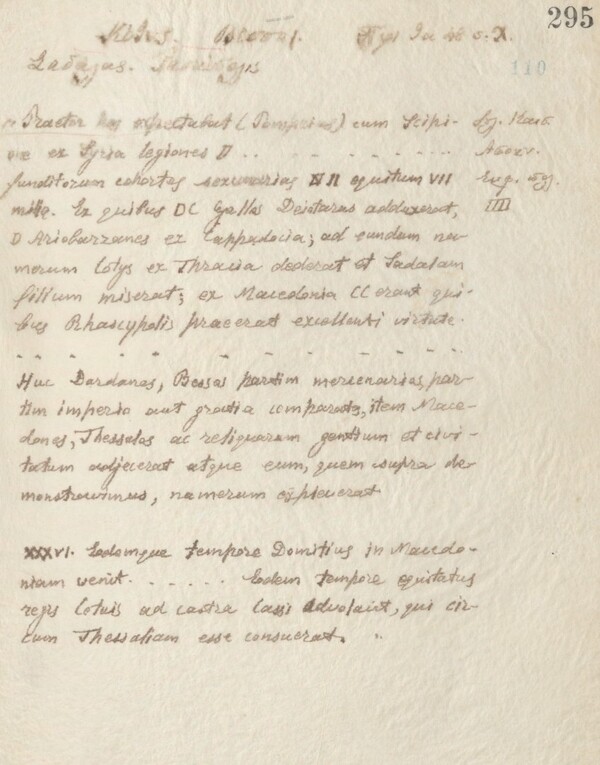 295
110
Praetor hos expectabat (Pompeius) cum Scipi-
one ex Syria legiones II . . . . . . . . .
funditorum cohortes sexcenarias II equitum VII
milia. Ex quibus DC Gallos Deiotarus adduxerat,
D Ariobarzanes ex Cappadocia; ad eundem nu-
merum Cotys ex Thracia dederat et Sadalam
filium miserat; ex Macedonia CC erant qui-
bus Rhascypolis praeerat excellenti virtute.
. . . . . . . . .
Huc Dardanos, Bessos partim mercenarios, par-
tim imperio aut gratia comparatos, item Mace-
dones, Thessalos ac reliquarum gentium et civi-
tatum adjecerat atque eum, quem supra de-
monstravimus, numerum expleverat
XXXVI. Eodemque tempore Domitius in Macedo-
niam venit. . . . . . . Eodem tempore equitatus
regis Cotuis ad castra Cassi advolavit, qui cir-
cum Thessaliam esse consuerat.